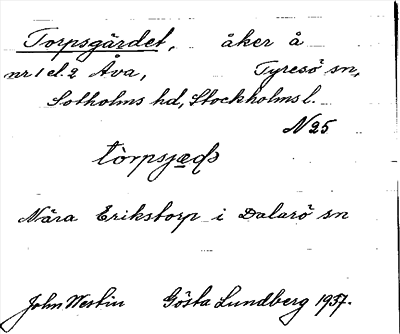 Torpsgärdet, åker å
nr 1 el. 2 Åva, Tyresö sn,
Sotholms hd, Stockholms l.
N25
Nära Erikstorp i Dalarö sn
John Westin Gösta Lundberg 1937.